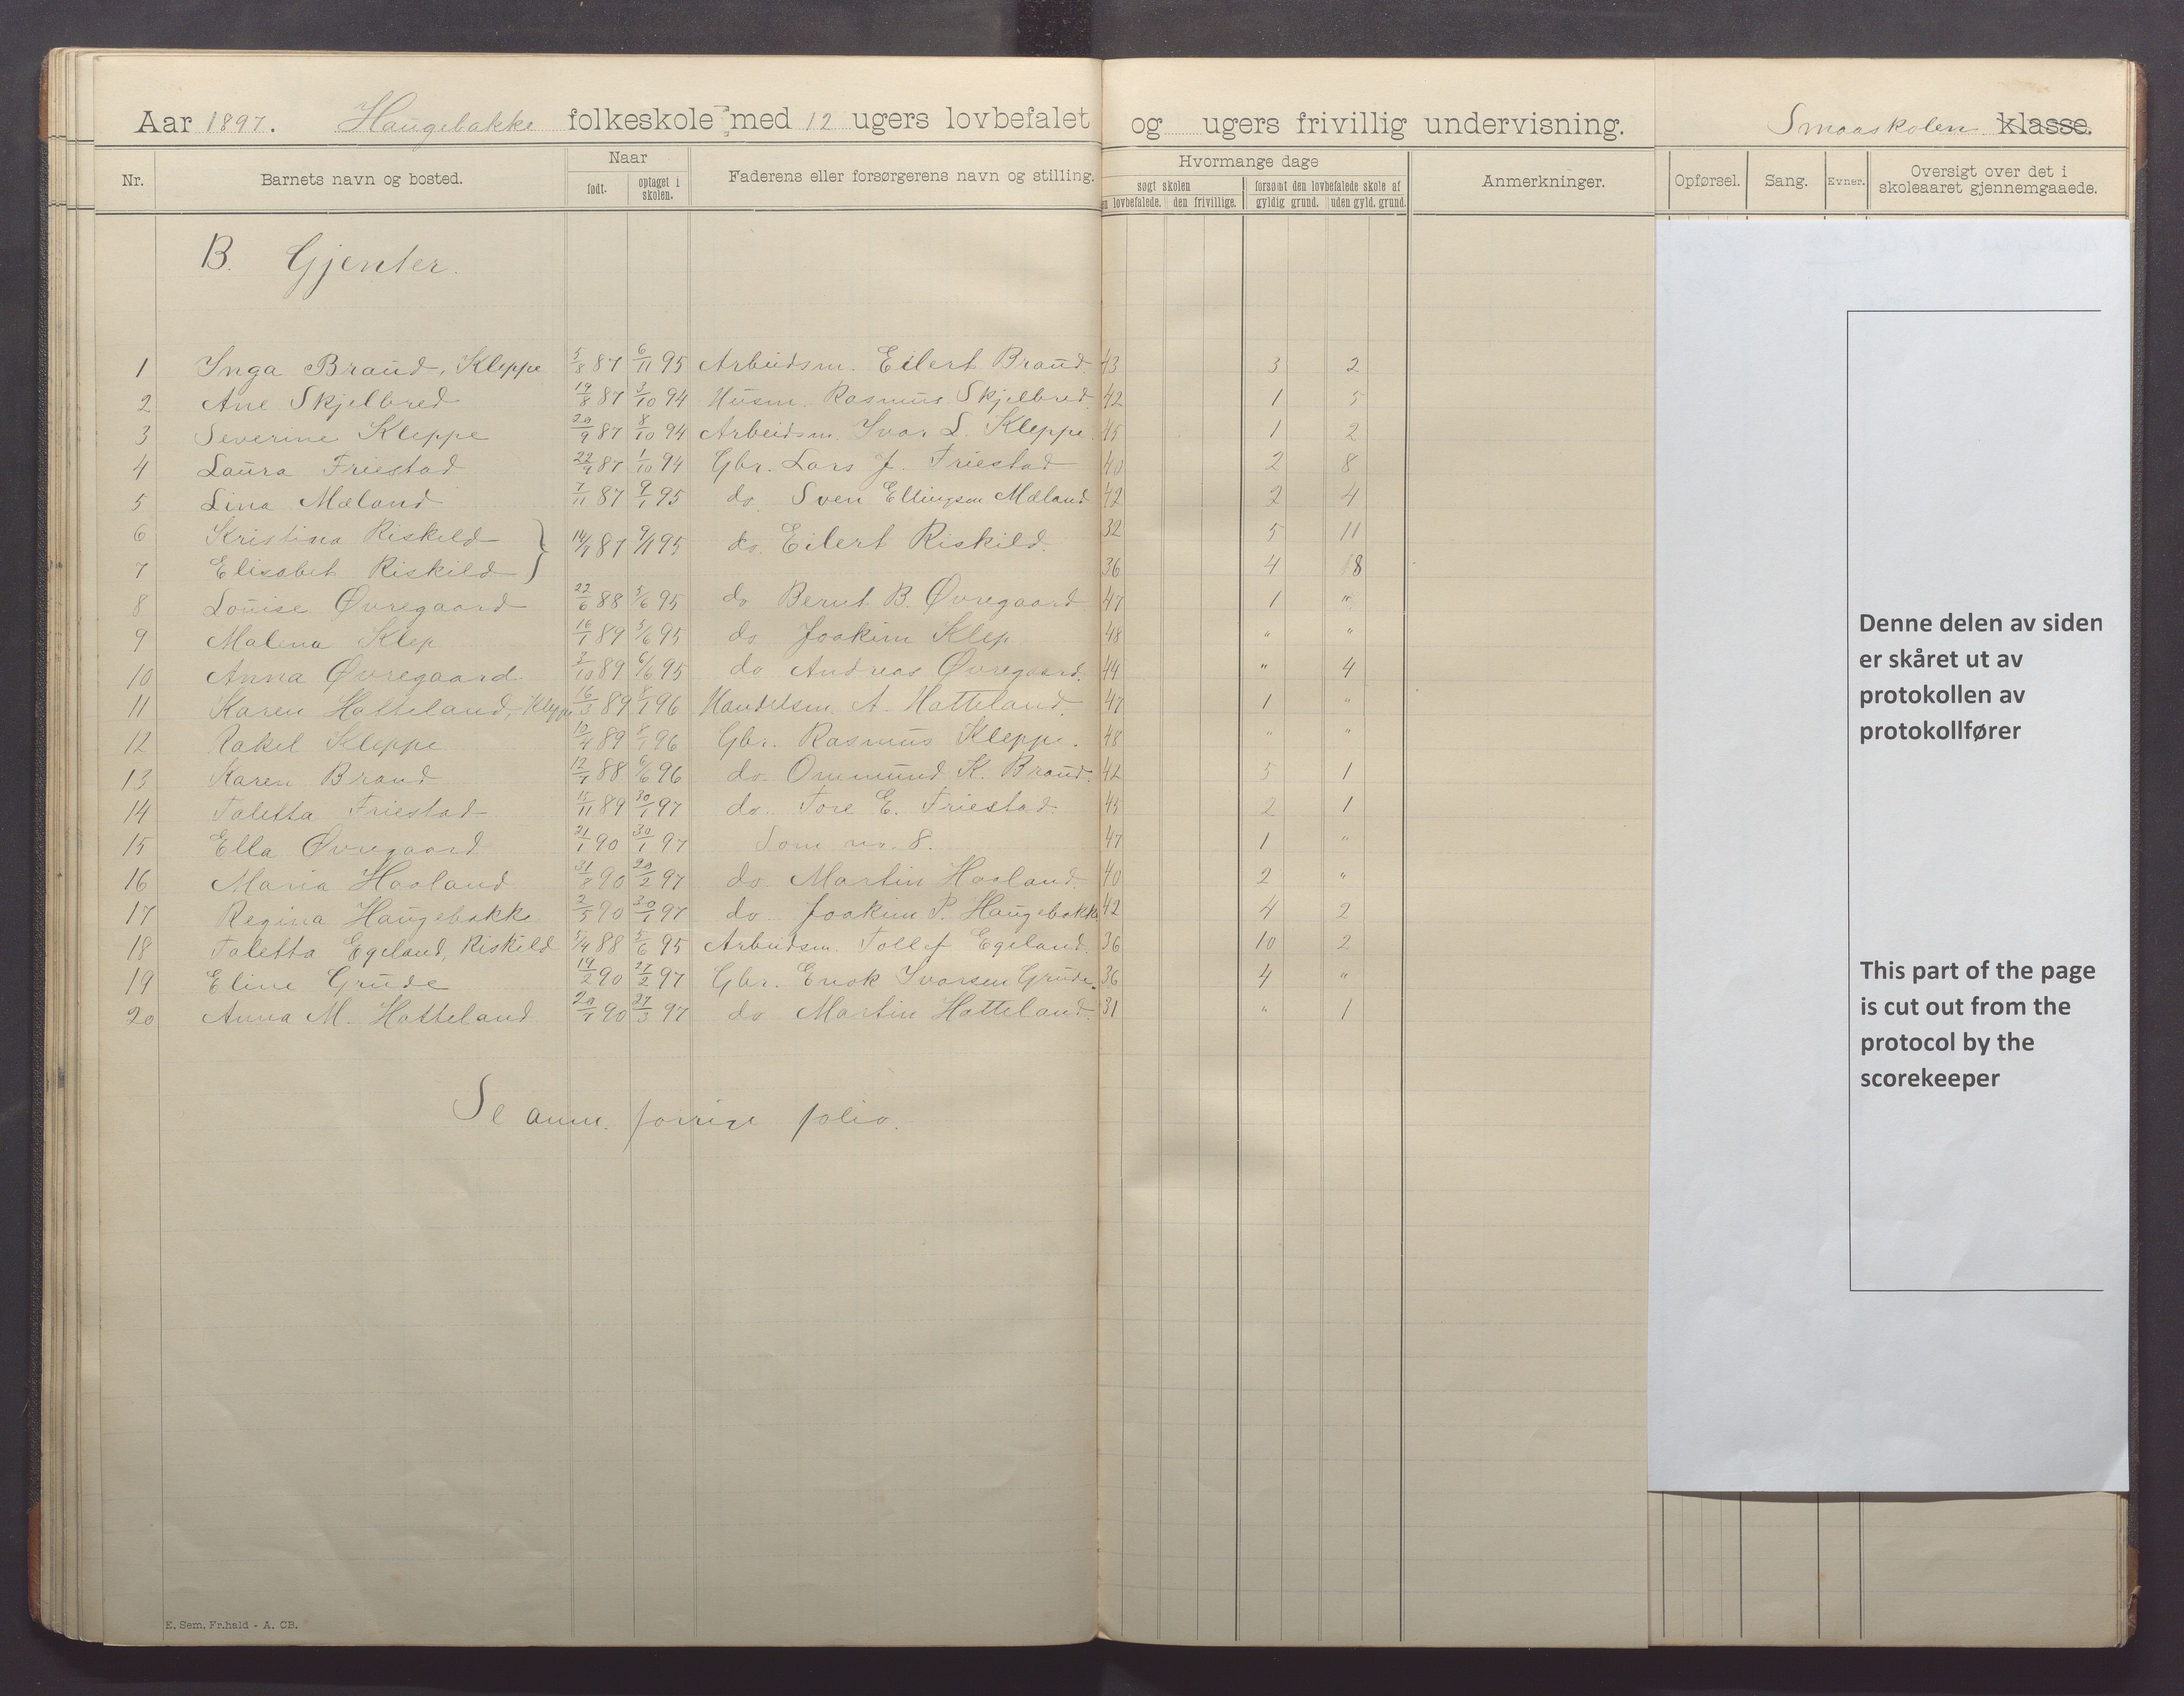 Aar 1897. Haugebakke folkeskole med 12 ugers lovbefalet og ugers frivillig undervisning. Smaaskolen klasse.
Nr. Barnets navn og bosted. Naar Faderens eller forsørgerens navn og stilling. Hvormange dage Anmerkninger. Opførsel. Sang. Evner. Oversigt over det i skoleaaret gjennemgaaede.
født. optaget i skolen. søgt skolen forsømt den lovbefalede skole af
en lovbefalede. den frivillige. gyldig grund. uden gyld. grund.
B. Gjenter.
1 Inga Braud, Kleppe 5/8 87 6/11 95 Arbeidsm. Eilert Braud. 43 3 2
2 Ane Skjelbred 19/8 87 3/10 94 Husm. Rasmus Skjelbred 42 1 5
3 Severine Kleppe 20/9 87 8/10 94 Arbeidsm. Ivar L. Kleppe. 45 1 2
4 Laura Friestad 87 1/10 94 Gbr. Lars J. Friestad 40 2 8
5 Lina Mæland 7/11 87 95 do. Sven Ellingsen Mæland 42 2 4
6 Kristina Riskild 32 5 11
} 87 95 do. Eilert Riskild.
7 Elisabet Riskild 36 4 8
8 Louise Øvregaard 22/6 88 5/6 95 do Bernt B. Øvregaard 47 1 "
9 Malena Klep 16/1 89 5/6 95 do Joakim Klep 48 " "
10 Anna Øvregaard. 89 6/6 95 do Andreas Øvregaard. 44 " 4
11 Karen Hatteland, Kleppe 16/3 89 8/1 96 Handelsm. A. Hatteland. 47 1 "
12 Rakel Kleppe 89 8/1 96 Gbr. Rasmus Kleppe. 48 " "
13 Karen Braud 88 6/6 96 do. Ommund K. Braud. 42 5 1
14 Taletta Friestad 15/11 89 30/1 97 do. Tore E. Friestad. 45 2 1
15 Ella Øvregaard 21/1 90 30/1 97 Som no. 8. 47 1 "
16 Maria Haaland 31/8 90 20/2 97 do Martin Haaland. 40 2 "
17 Regina Haugebakke 2/5 90 30/1 97 do Joakim P. Haugebakke 42 4 2
18 Taletta Egeland, Riskild 5/4 88 5/6 95 Arbeidsm. Tollef Egeland. 36 10 2
19 Eline Grude 19/2 90 27/2 97 Gbr. Enok Ivarsen Grude. 36 4 "
20 Anna M. Hatteland 90 27/3 97 do Martin Hatteland. 31 " 1
Se anm. forrige folio.
E. Sem, Fr.hald - A. CB.
Denne delen av siden
er skåret ut av
protokollen av
protokollfører
This part of the page
is cut out from the
protocol by the
scorekeeper